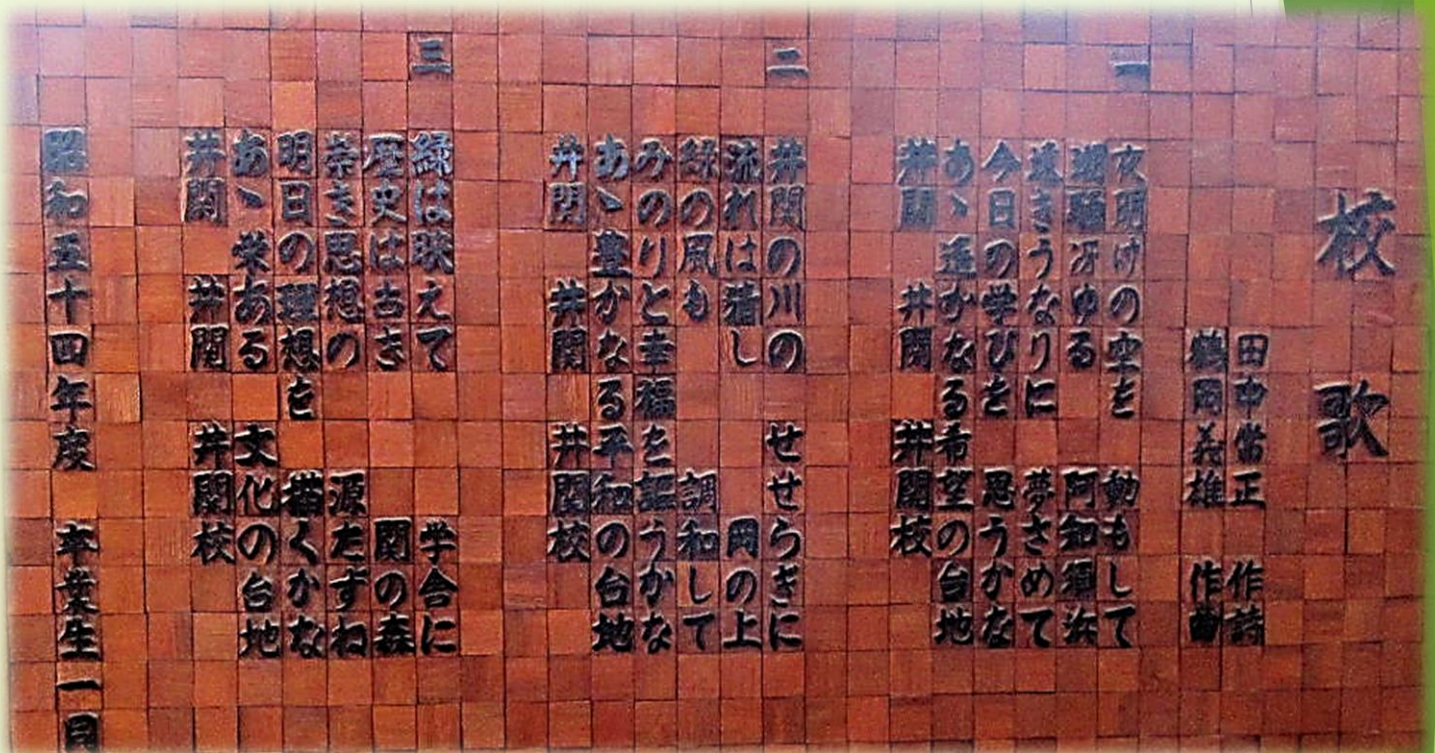 校 歌
田中常正 作詩
鶴岡義雄 作曲
一
夜明けの空を 動もして
潮騒冴ゆる 阿知須浜
遠きうなりに 夢さめて
今日の学びを 思うかな
あゝ遥かなる希望の台地
井関 井関 井関校
二
井関の川の せせらぎに
流れは清し 岡の上
緑の風も 調和して
みのりと幸福を謳うかな
あゝ豊かなる平和の台地
井関 井関 井関校
三
緑は映えて 学舎に
歴史は古き 関の森
崇き思想の 源たずね
明日の理想を 描くかな
あゝ栄ある 文化の台地
井関 井関 井関校
昭和五十四年度 卒業生一同